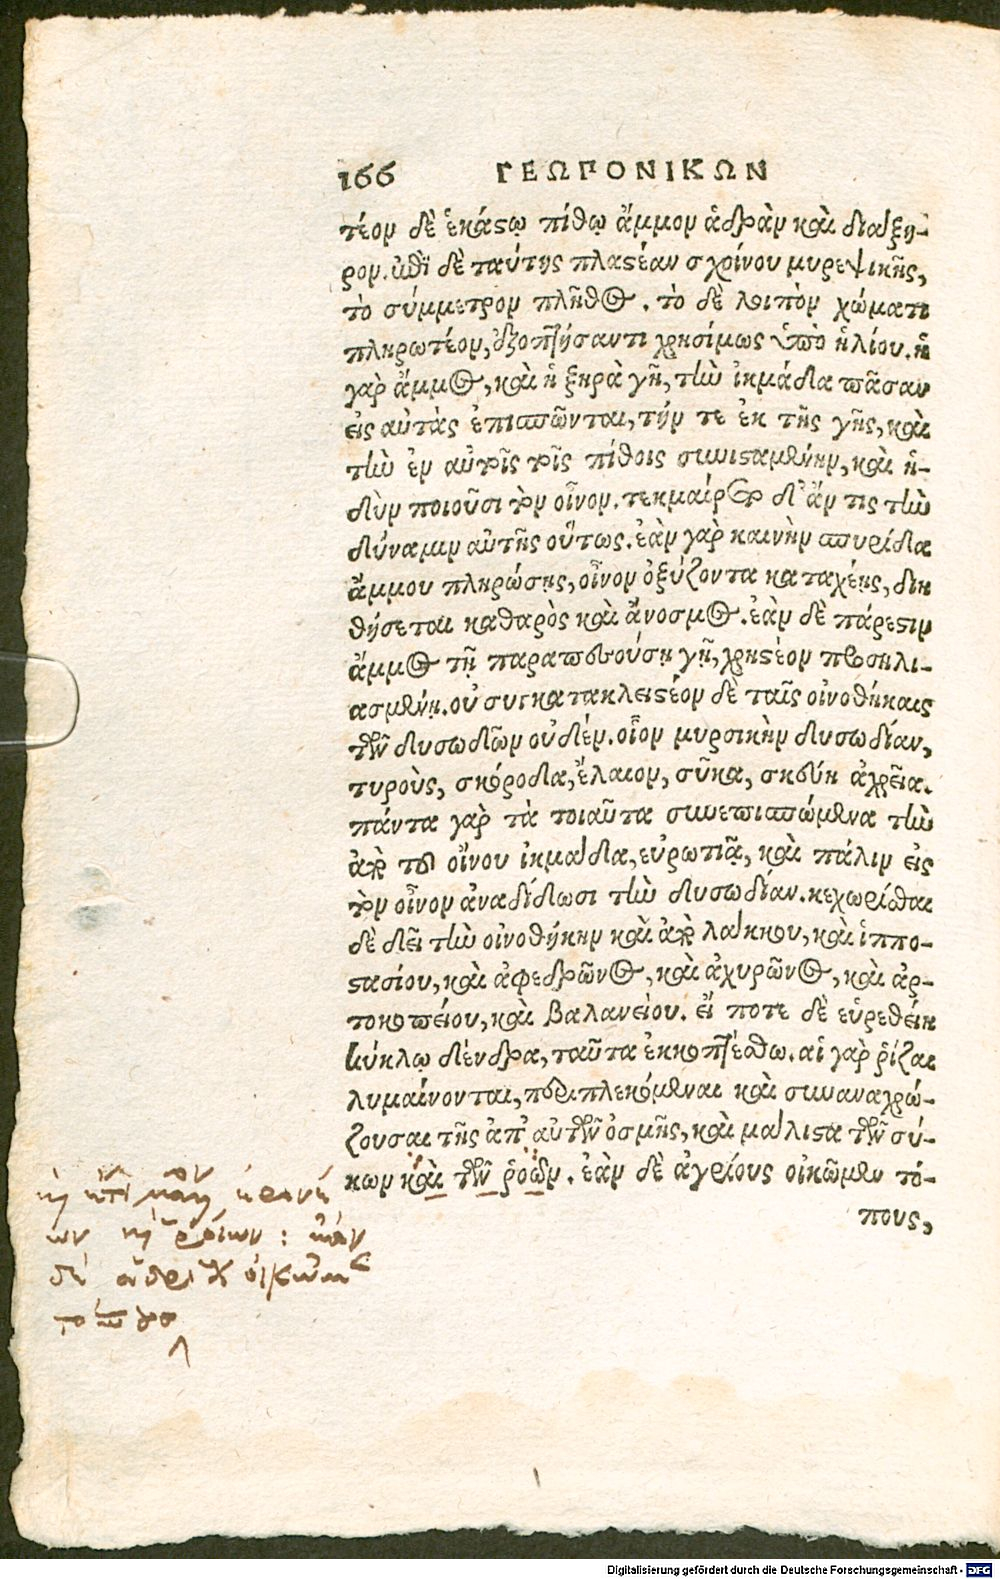 166 ΓΕΩΠΟΝΙΚΩΝ
τέον δὲ ἑκάστῳ πίθῳ ἄμμον ἁδρὰν καὶ διάξη-
ρον. μετὰ δὲ ταύτης πλαστέαν σχοίνου μυρεψικῆς,
τὸ σύμμετρον πλῆθος. τὸ δὲ λοιπὸν χώματι
πληρωτέον, ὀξοπτήσαντι χρησίμως ὑπὸ ἡλίου. ἡ
γὰρ ἄμμος, καὶ ἡ ξηρὰ γῆ, τὴν ἰκμάδα πᾶσαν
εἰς αὐτὰς ἐπισπῶνται, τήν τε ἐκ τῆς γῆς, καὶ
τὴν ἐν αὐτοῖς τοῖς πίθοις συνισταμένην, καὶ ἡ-
δὺν ποιοῦσι τὸν οἶνον. τεκμαίροιτο δ' ἄν τις τὴν
δύναμιν αὐτῆς οὕτως. ἐὰν γὰρ καινὴν σπυρίδα
ἄμμου πληρώσῃς, οἶνον ὀξύζοντα καταχέῃς, διη
θήσεται καθαρὸς καὶ ἄνοσμος. ἐὰν δὲ πάρεστιν
ἄμμος τῇ παρατυχούσῃ γῇ, χρηστέον προσηλι-
ασμένῃ. οὐ συγκατακλειστέον δὲ ταῖς οἰνοθήκαις
τῶν δυσωδῶν οὐδέν. οἷον μυρσικὴν δυσωδίαν,
τυροὺς, σκόροδα, ἔλαιον, σῦκα, σκεύη ἀχρεῖα.
πάντα γὰρ τὰ τοιαῦτα συνεπισπώμενα τὴν
ἀπὸ τοῦ οἴνου ἰκμάδα, εὐρωτιᾷ, καὶ πάλιν εἰς
τὸν οἶνον ἀναδίδωσι τὴν δυσωδίαν. κεχωρίσθαι
δὲ δεῖ τὴν οἰνοθήκην καὶ ἀπὸ λάκκου, καὶ ἱππο-
στασίου, καὶ ἀφεδρῶνος, καὶ ἀχυρῶνος, καὶ ἀρ-
τοκοπείου, καὶ βαλανείου. εἴ ποτε δὲ εὑρεθείη
κύκλῳ δένδρα, ταῦτα ἐκκοπτέσθω. αἱ γὰρ ῥίζαι
λυμαίνονται, περιπλεκόμεναι καὶ συναναχρώ-
ζουσαι τῆς ἀπ' αὐτῶν ὀσμῆς, καὶ μάλιστα τῶν σύ-
κων καὶ τῶν ῥοῶν. ἐὰν δὲ ἀγρίους οἰκῶμεν τό-
πους,